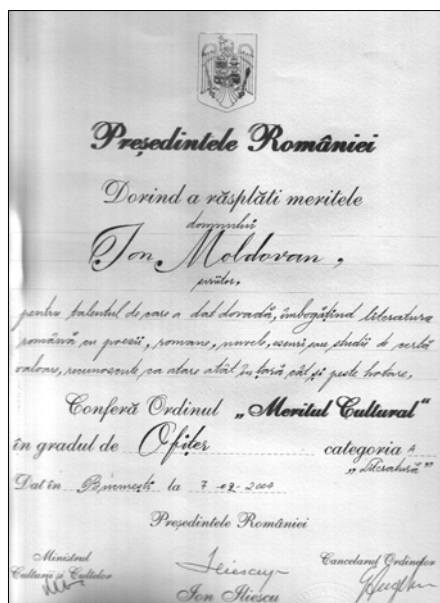 Președintele României
Dorind a răsplăti meritele
domnului
Ion Moldovan,
scriitor,
pentru talentul de care a dat dovadă, îmbogățind literatura
română cu poezii, romane, nuvele, eseuri sau studii de certă
valoare, recunoscute ca atare atât în țară cât și peste hotare,
Conferă Ordinul „Meritul Cultural"
în gradul de Ofițer categoria A
„Literatură"
Dat în București la 7-02-2004
Președintele României
Ministrul
Culturii și Cultelor
Cancelarul Ordinelor
Ion Iliescu